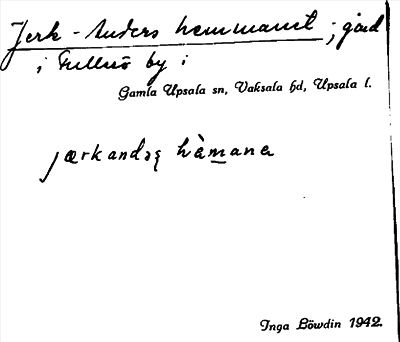 Jerk-Anders hemmanet ; gård
i Fullerö by i
Gamla Upsala sn, Vaksala hd, Upsala l.
jærkandəʂ hàmana
Inga Löwdin 1942.